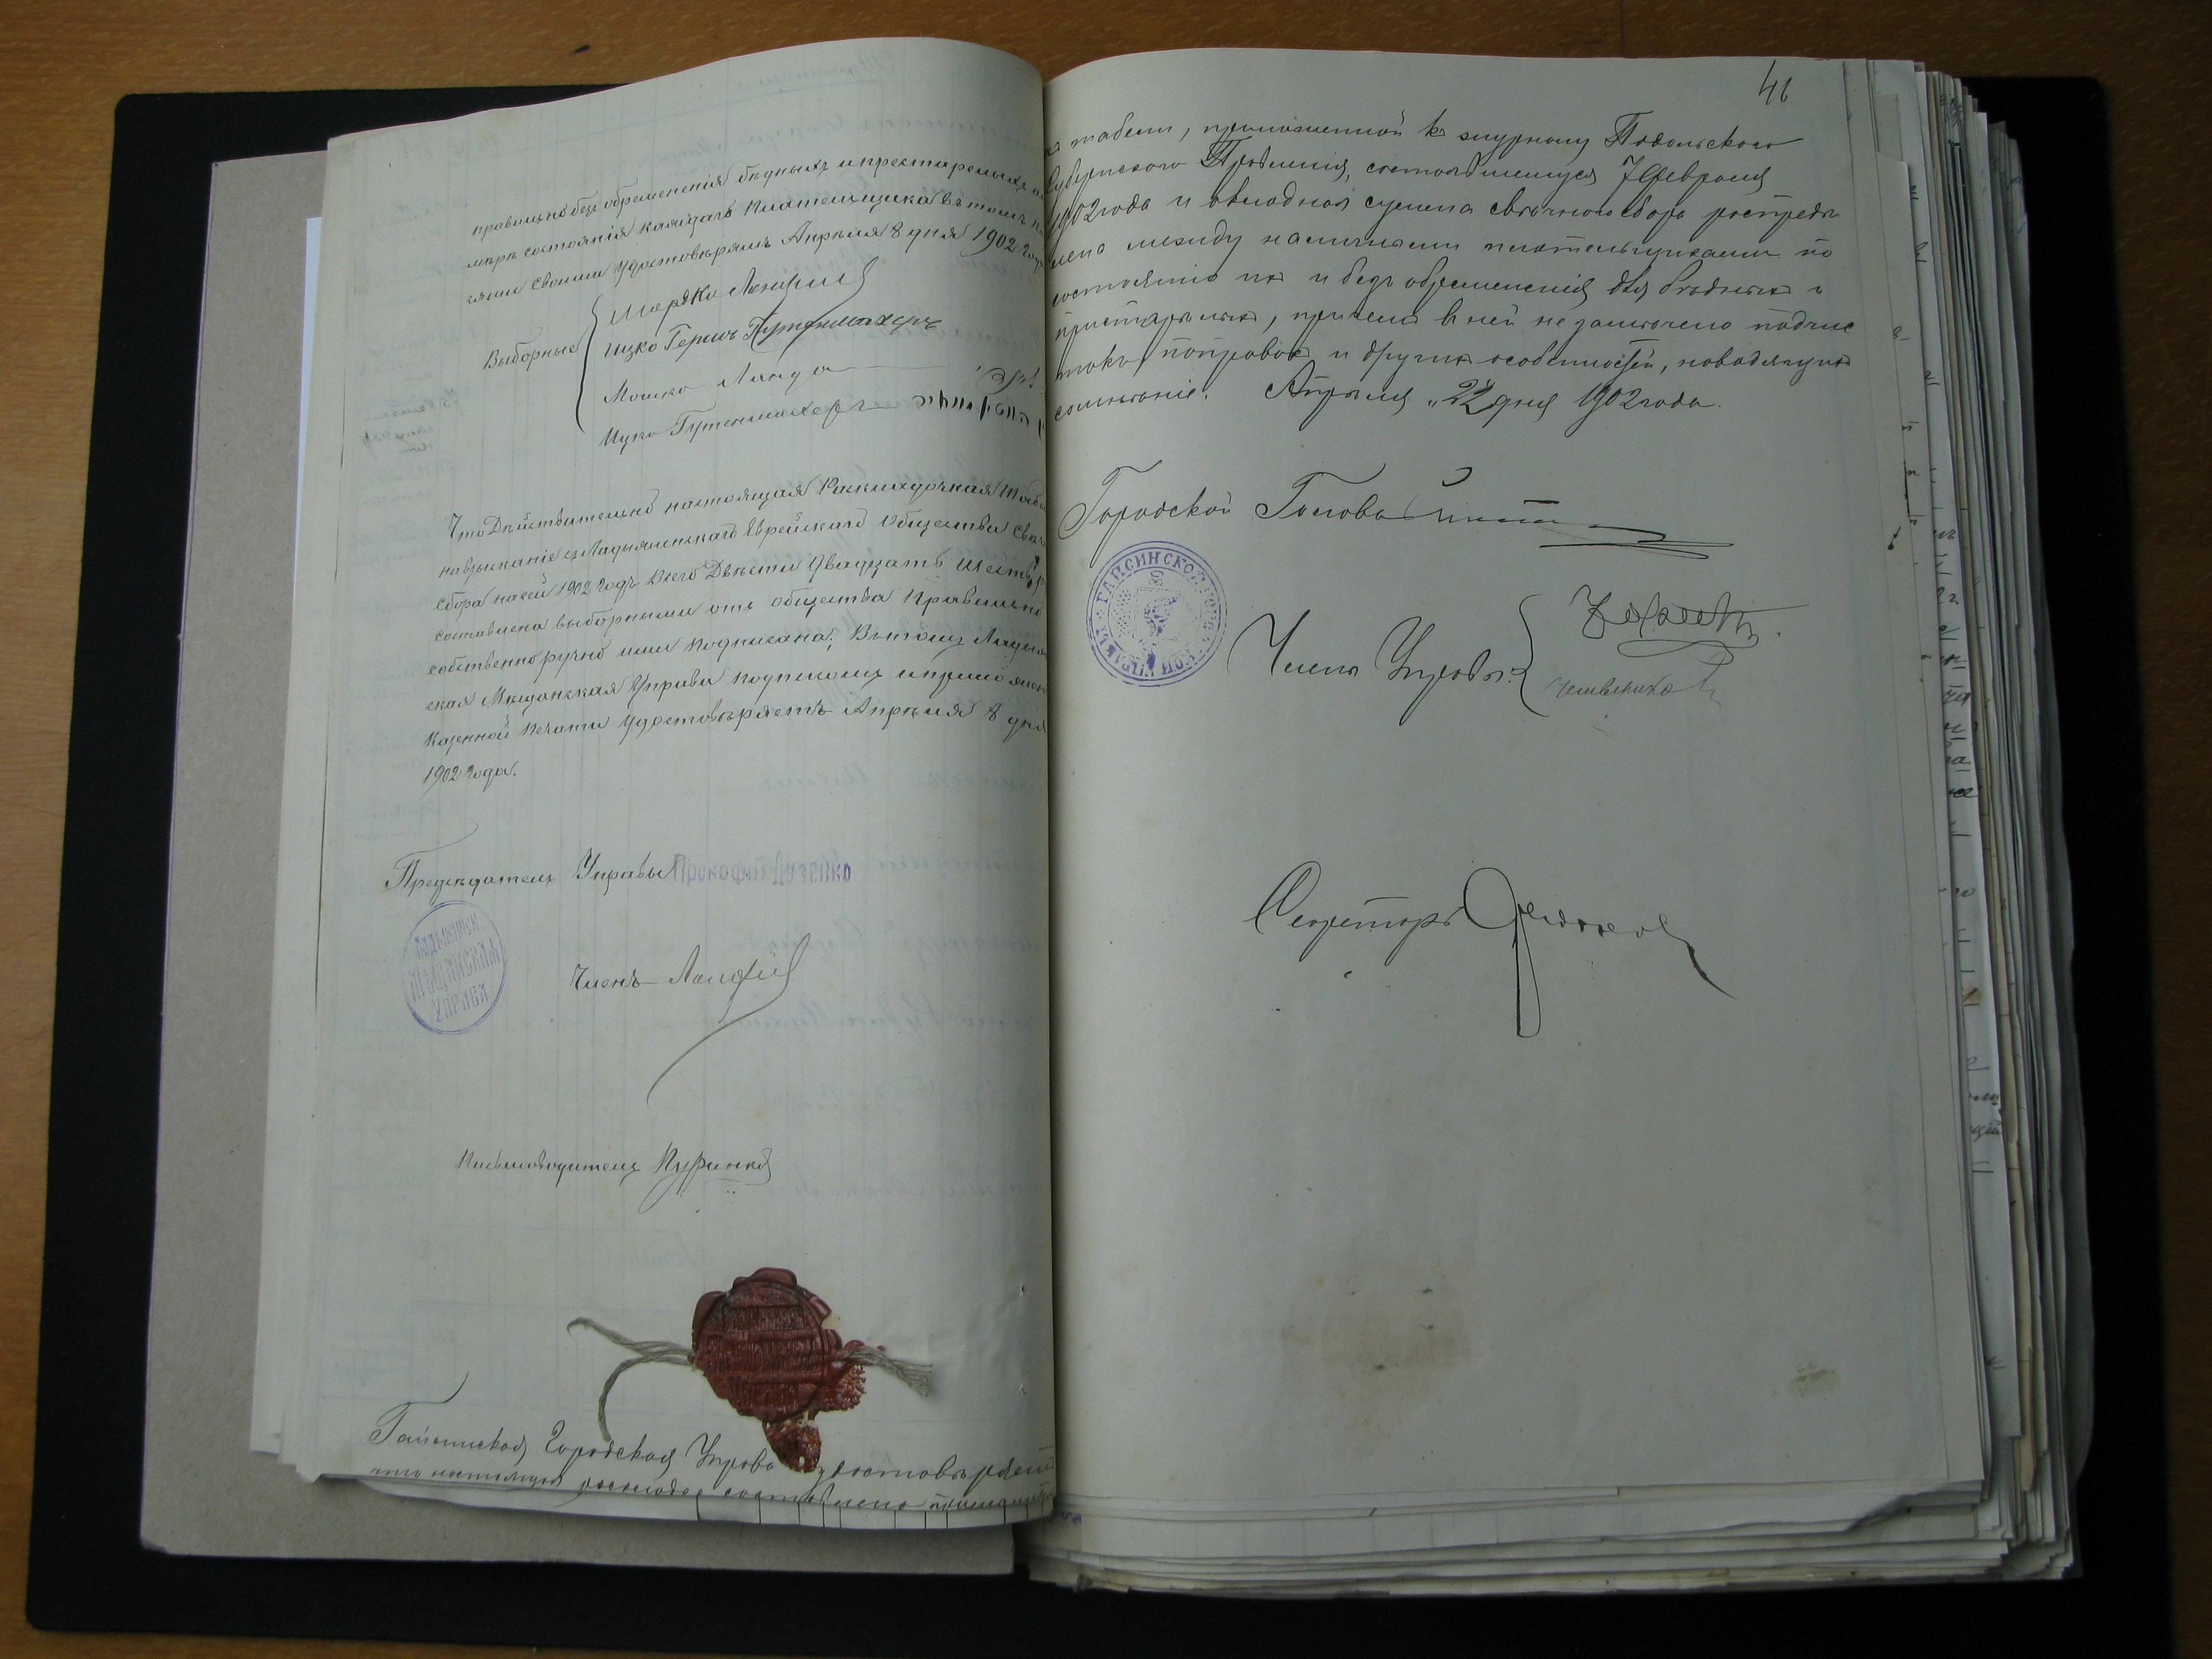 правильно безъ обремененія бѣдныхъ и престарелыхъ
мѣрѣ состоянія каждаго плательщика въ томъ
своими удостовѣряемъ Апрѣля 8 дня 1902 года
Выборные
Ицко Гершъ Гутенмахеръ
Мошко Ланда
Ицко Гутенмахеръ
Что Дѣйствительно настоящая Раскладочная
на взысканіе съ Ладыжинскаго Еврейскаго Общества
сбора на сей 1902 годъ Всего Двѣсти Двадцать Шесть
составлена выборными отъ общества Правильно
собственноручно ими подписана, Въ томъ
ская Мѣщанская Управа подписомъ и приложен
Казенной Печати удостовѣряетъ Апрѣля 8 дня
1902 года.
Предсѣдатель Управы Прокофій Довгино
Ладыжинск
Мѣщанская
Управа
Членъ
Письмоводитель
Гайсинская Городская Управа удостовѣряетъ
что настоящая раскладка составлена
46
табели, приложенной къ журналу Подольскаго
Губернскаго Правленія, состоявшемуся 7 Февраля
1902 года и окладная сумма свѣчнаго сбора распредѣ
лена между наличными плательщиками по
состоянію их и безъ обремененія для бѣдных и
престарѣлых, причем в ней не заключено подчис
токъ, поправок и других особенностей, наводящих
сомнѣніе. Апрѣля „22" дня 1902 года.
Городской Голова
ГАЙСИНСКОЙ ГОРОДСКОЙ УПРАВЫ
Члены Управы:
Секретарь